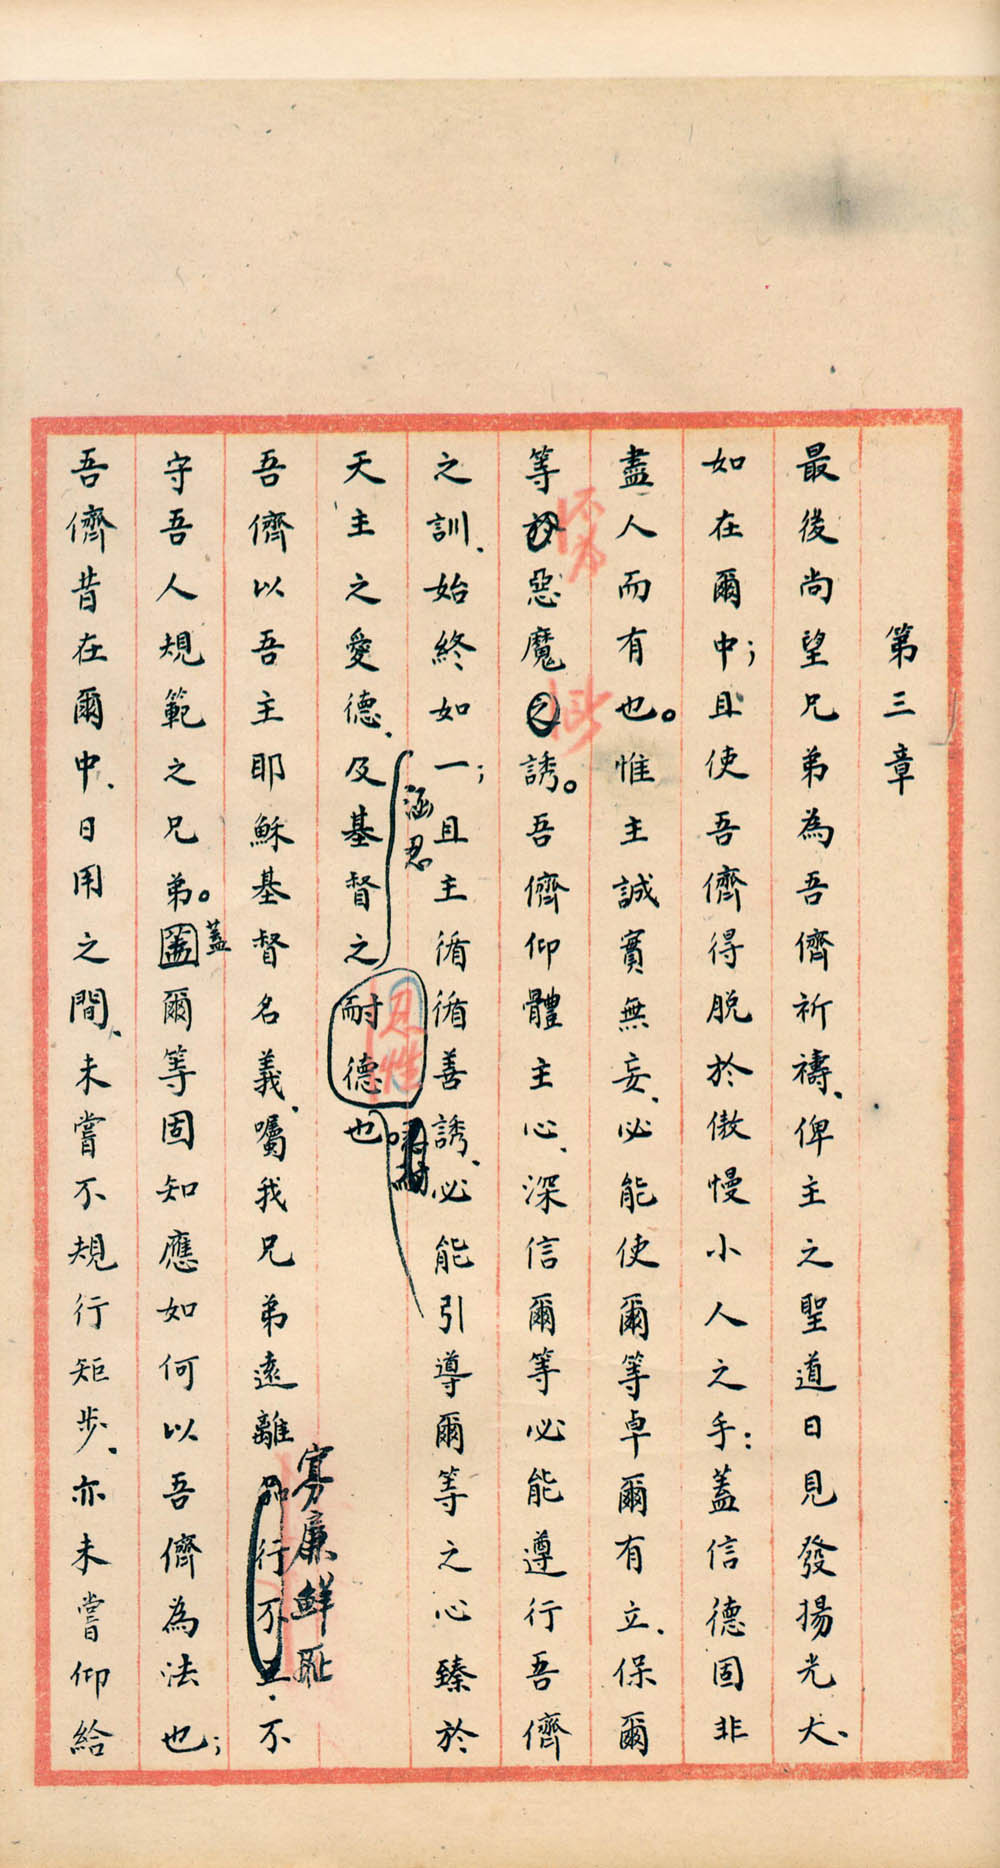 第三章
最後尚望兄弟為吾儕祈禱、俾主之聖道日見發揚光大、
如在爾中；且使吾儕得脫於傲慢小人之手：蓋信德固非
盡人而有也。惟主誠實無妄、必能使爾等卓爾有立、保爾
不為
等於惡魔之誘。吾儕仰體主心、深信爾等必能遵行吾儕
之訓、始終如一；且主循循善誘、必能引導爾等之心臻於
涵忍
忍性
天主之愛德、及基督之耐德也
寡廉鮮恥
吾儕以吾主耶穌基督名義、囑我兄弟遠離品行不正、不
蓋
守吾人規範之兄弟。蓋爾等固知應如何以吾儕為法也；
吾儕昔在爾中、日用之間、未嘗不規行矩步、亦未嘗仰給